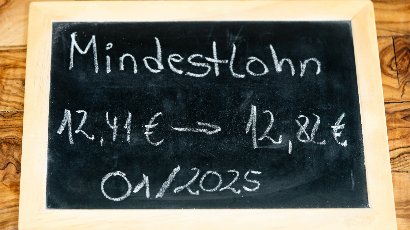 Mindestlohn
12,41 € → 12,82 €
01/2025